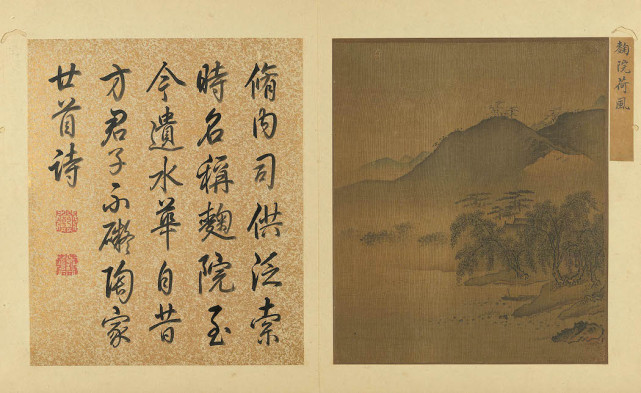 麯院荷風
脩内司供泛索
時名稱麯院至
今遺水華自昔
方君子不礙陶家
廿首詩